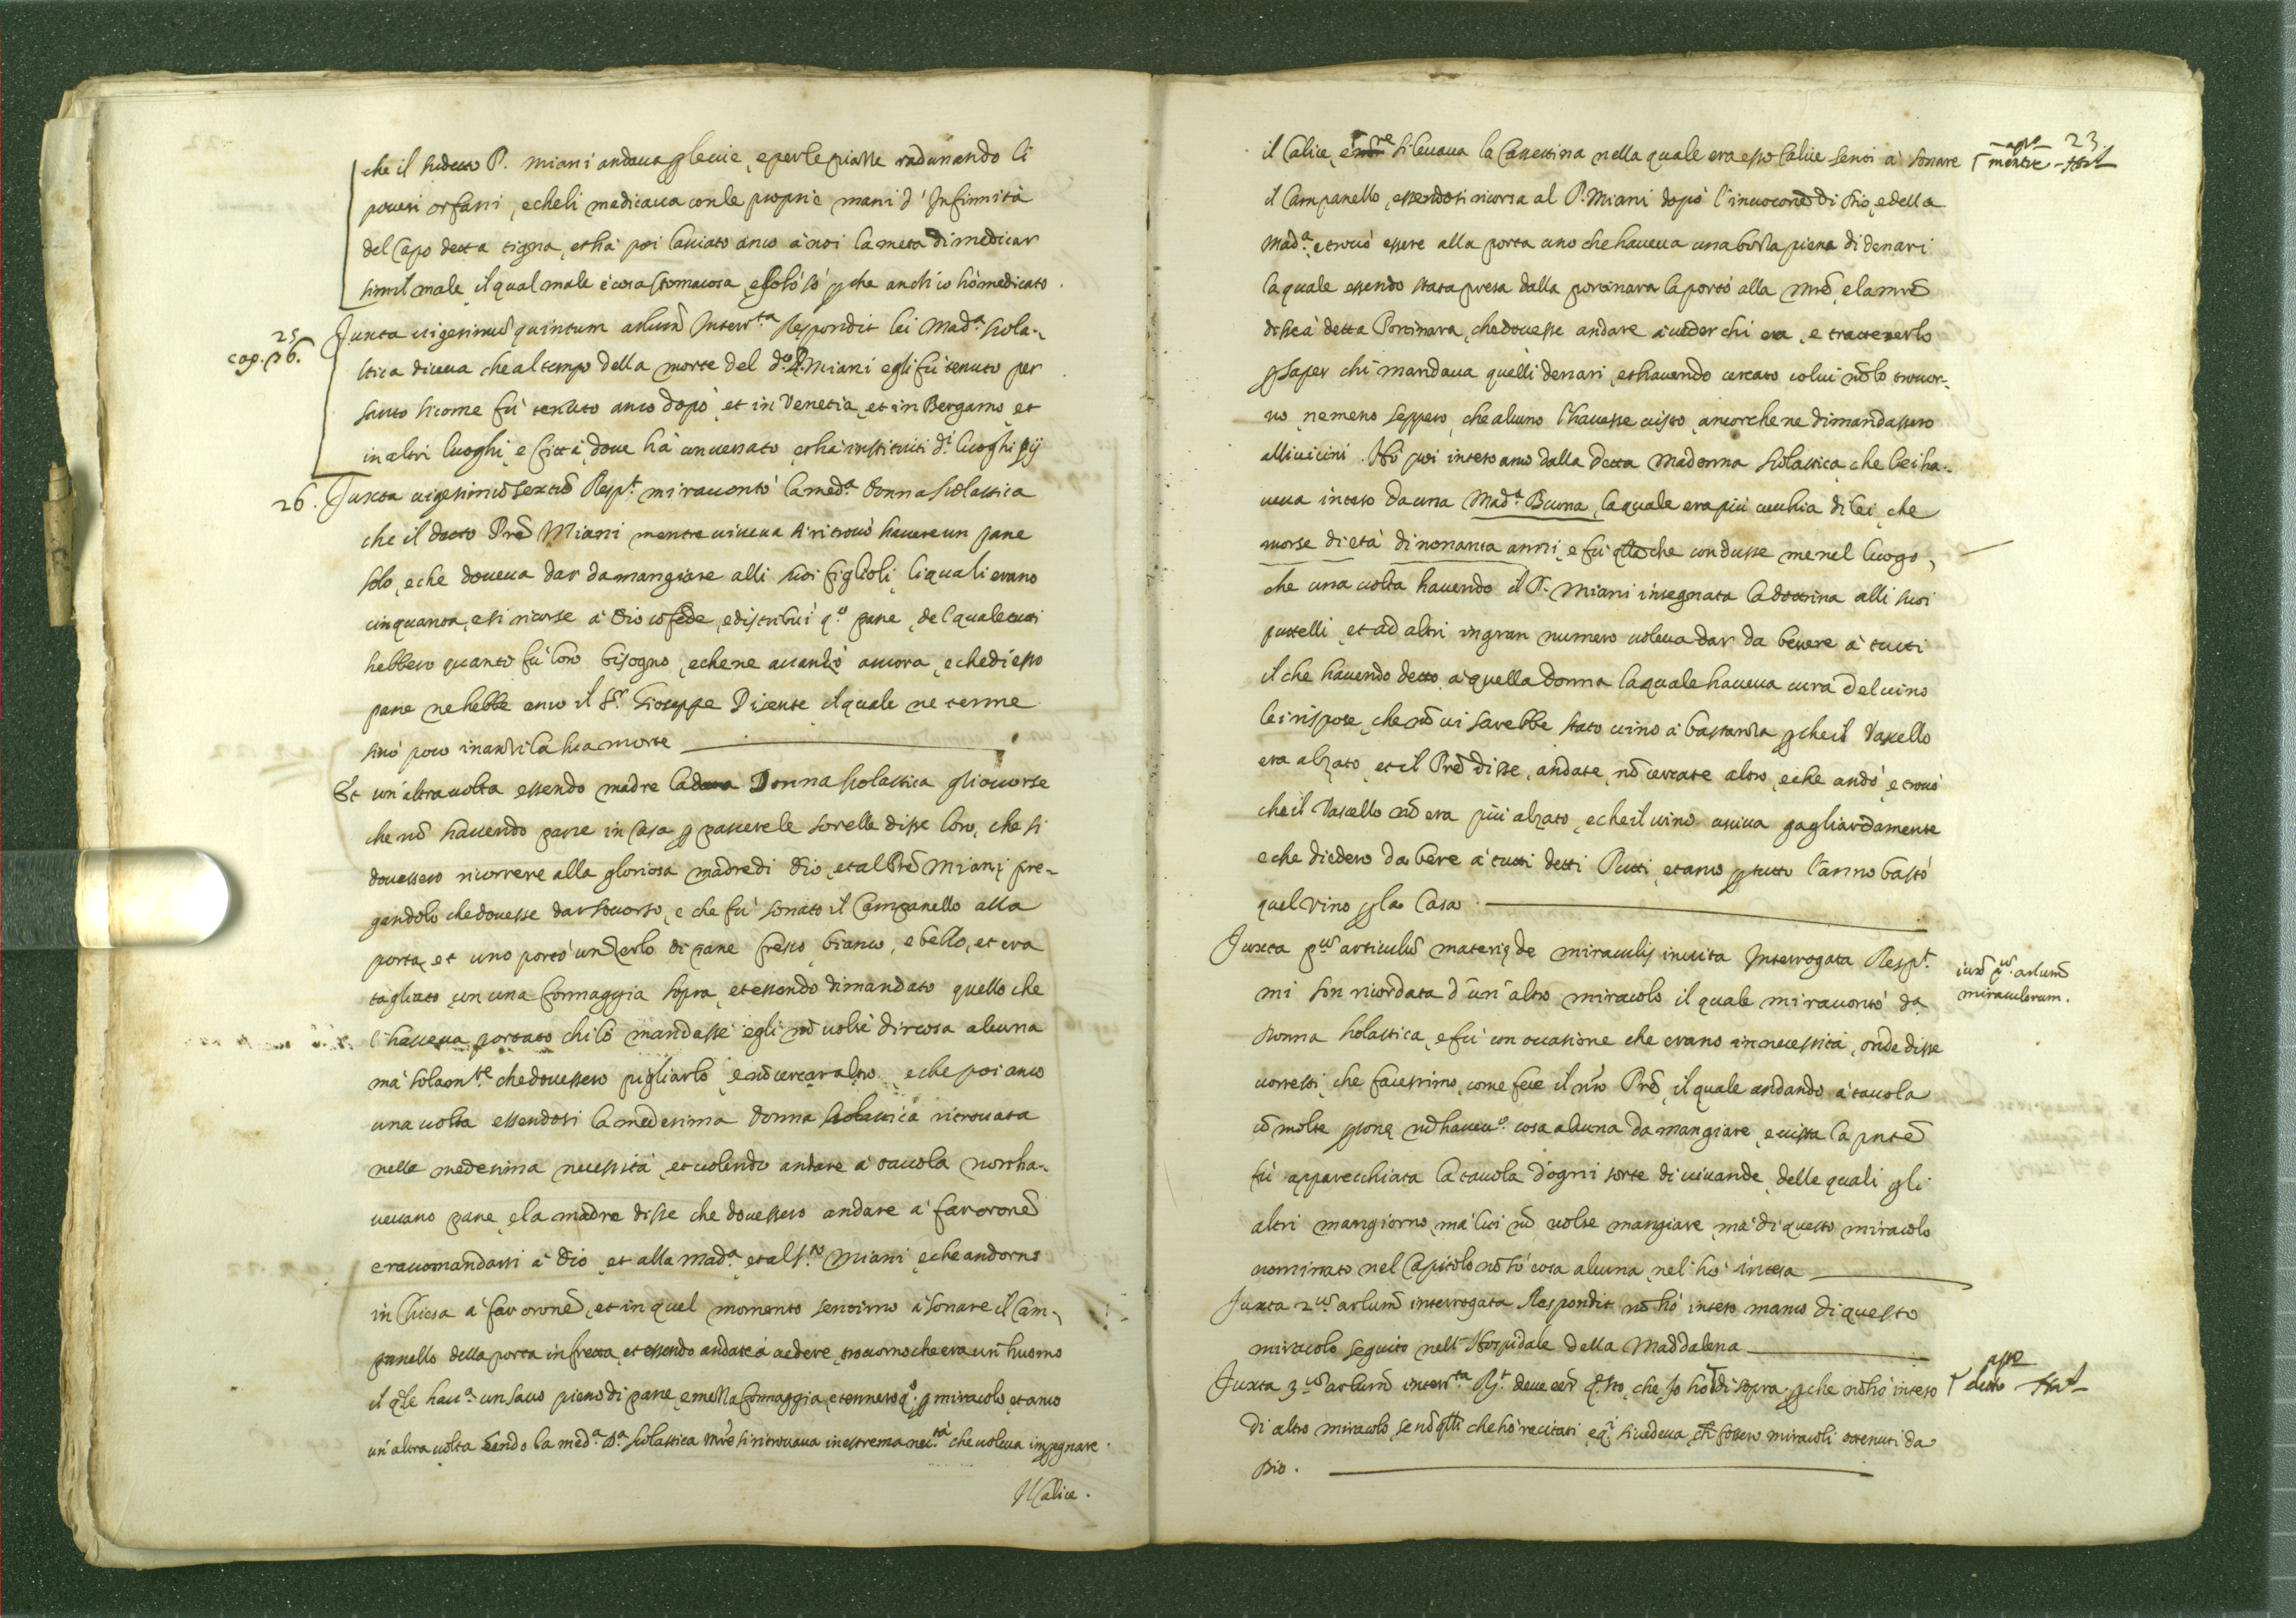 che il sudetto P. Miani andava p le vie, e per le piasse radunando li
poveri orfani, e che li medicava con le proprie mani d'Infirmità
del Capo detta tigna, et hà poi lassiato anco à noi la meta di medicar
simil male, il qual male è cosa stomacosa, e solo sò p che anch'io hò medicato.
25
cap. 36.
Juxta vigesimũ quintum artlum̃ Interr.ta Respondit lei Mad.a Scola-
stica diceva che al tempo della morte del d.o P. Miani egli fù tenuto per
santo sicome fù tenuto anco dopò, et in Venetia, et in Bergamo, et
in altri luoghi, e Città, dove hà conversato, et hà instituiti d.i luoghi pij
26. Juxta vigesimũ sextũ Resp.t mi raccontò la med.a Donna Scolastica
che il detto Prẽ Miani mentre viveva si ritrovò havere un pane
solo, e che doveva dar da mangiare alli suoi figlioli, li quali erano
cinquanta, e si ricorse à Dio cõ fede, e distribuì q.o pane, del quale tutti
hebbero quanto fù loro bisogno, e che ne avanzò ancora, e che di esso
pane ne hebbe anco il S.r Gioseppe Dicente il quale ne tenne
sino poco inanzi la sua morte
Et un'altra volta essendo madre la detta Donna Scolastica gli occorse
che nõ havendo pane in Casa p pascere le sorelle disse loro, che si
dovessero ricorrere alla gloriosa madre di Dio, et al Prẽ Miani, pre-
gandolo che dovesse dar soccorso, e che fù sonato il Campanello alla
porta, et uno portò un zerlo di pane fresco, bianco, e bello, et era
tagliato con una formaggia sopra, et essendo dimandato quello che
l'haveva portato chi lo mandasse egli nõ volse dir cosa alcuna
mà solam.te che dovessero pigliarlo, e nõ cercar altro, e che poi anco
una volta essendosi la medesima Donna Scolastica ritrovata
nella medesima necessità, et volendo andare à tavola non ha-
vevano pane, e la madre disse che dovessero andare à far oronẽ
e raccomandarsi à Dio, et alla Mad.a, et al P. Miani, e che andorno
in Chiesa à far oronẽ, et in quel momento sentirno à sonare il Cam-
panello della porta in fretta, et essendo andate à vedere, trovorno che era un huomo
il qle hav.a un sacco pieno di pane, e mezza formaggia, e tennero q.o p miracolo, et anco
un'altra volta sendo la med.a D.a Scolastica mr̃e si ritrovava in estrema nec.tà che voleva impegnare
Il Calice.
23
il Calice, e si levava la Cassettina nella quale era esso Calice sentì à sonare
mentre
il Campanello, essendosi ricorsa al P. Miani dopò l'invoconẽ di Dio, e della
Mad.a, e trovò essere alla porta uno che haveva una borsa piena di denari
la quale essendo stata presa dalla portinara la portò alla mr̃ẽ, e la mr̃ẽ
disse à detta Portinara, che dovesse andare à veder chi era, e trattenerlo
p saper chi mandava quelli denari, et havendo cercato colui nõ lo trovor-
no, ne meno seppero, che alcuno l'havesse visto, ancorche ne dimandassero
alli vicini. Hò poi inteso anco dalla detta Madonna Scolastica che lei ha-
veva inteso da una Mad.a Buona, la quale era più vecchia di lei, che
morse di età di nonanta anni, e fù qlla che condusse me nel luogo,
che una volta havendo il P. Miani insegnata la dottrina alli suoi
puttelli, et ad altri in gran numero voleva dar da bevere à tutti
il che havendo detto à quella donna la quale haveva cura del vino
lei rispose, che nõ vi sarebbe stato vino à bastanza p che il Vassello
era alzato, et il Prẽ disse, andate, nõ cercate altro, e che andò, e trovò
che il Vascello nõ era più alzato, e che il vino usciva gagliardamente
e che diedero da bere à tutti detti Putti, et anco p tutto l'anno bastò
quel vino p la Casa.
Juxta p.us articulũ materię de miraculis inscrita Interrogata Resp.t
iuxẽ p.us artlum̃
miraculorum.
mi son ricordata d'un'altro miracolo il quale mi raccontò da
Donna Scolastica, e fù con occasione che erano in necessità, onde disse
vorressi, che facessimo, come fece il nr̃o Prẽ, il quale andando à tavola
cõ molte psone nõ havev.o cosa alcuna da mangiare, e vista la pntẽ
fù apparecchiata la tavola d'ogni sorte di vivande, delle quali gli
altri mangiorno, mà lui nõ volse mangiare, mà di questo miracolo
nominato nel Capitolo nõ sò cosa alcuna, ne l'hò intesa
Juxta 2.us artlum̃ interrogata Respondit nõ hò inteso manco di questo
miracolo seguito nell'Hospidale della Maddalena
Juxta 3.us artlum̃ interr.ta R.t deve eẽr q.sto, che io hò di sopra, p che nõ hò inteso
detto
di altro miracolo, se nõ qlli che hò recitati, e q.i si vedeva, ch fossero miracoli ottenuti da
Dio.